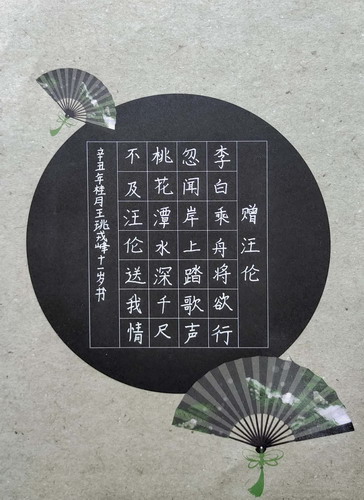 赠汪伦
李白乘舟将欲行
忽闻岸上踏歌声
桃花潭水深千尺
不及汪伦送我情
辛丑年桂月王珧戎峰十一岁书